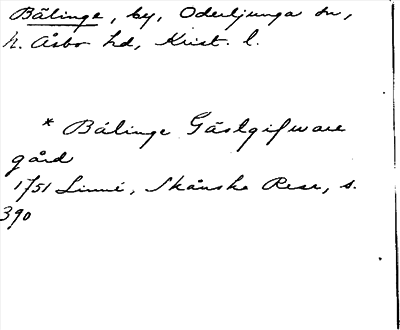 Bälinge, by, Oderljunga sn,
N. Åsbo hd, Krist. l.
* Bälinge Gästgifware
gård
1751 Linné, Skånska Resa, s.
390